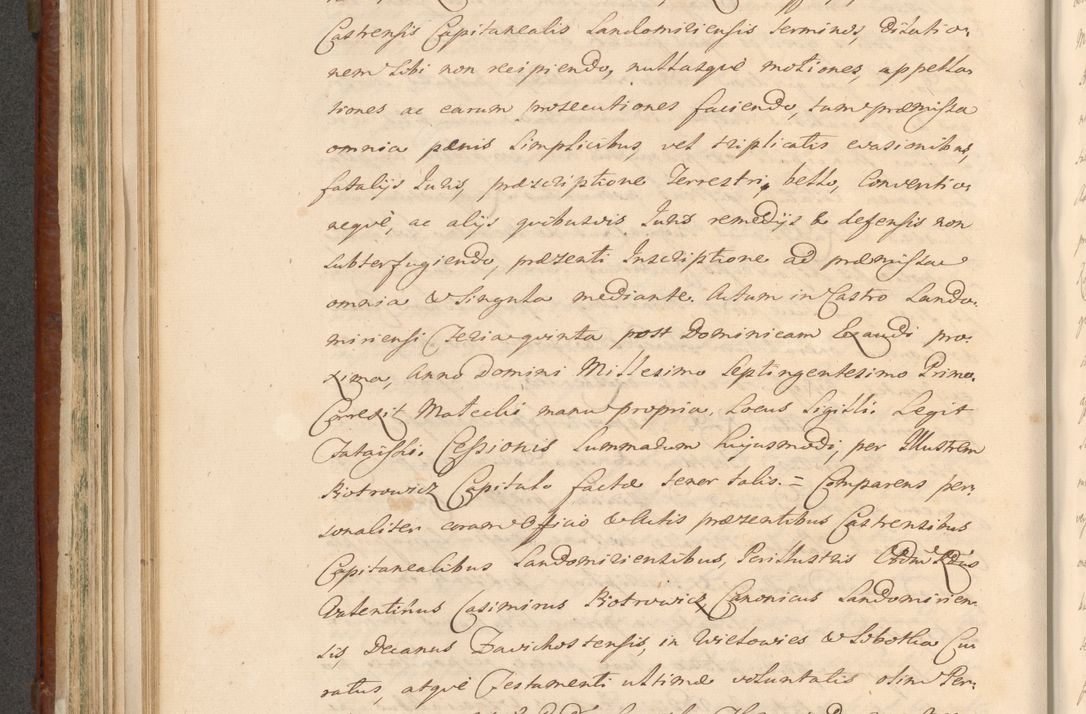 Castrensis Capitanealis Sandomiriensis terminos, Dilatio-
nem Sibi non recipiendo, nullasque motiones, appella-
tiones ac earum prosecutiones faciendo, tum præmissa
omnia pænis Simplicibus, vel triplicatis evasionibus,
fatalijs Juris, præscriptione Terrestri, bello, Conventio-
neque, ac alijs quibusvis Juris remedijs & defensis non
Subterfugiendo, præsenti Inscriptione ad præmissa
omnia & Singula mediante. Actum in Castro Sando-
miriensi Feria quinta post Dominicam Exaudi pro-
xima, Anno Domini Millesimo Septingentesimo Primo.
Correxit Matecki manu propria. Locus Sigilli. Legit
Cessionis Summarum hujusmodi, per Illustrem
Piotrowicz Capitulo factæ tenor talis. = Comparens per-
sonaliter coram Officio & Actis præsentibus Castrensibus
Capitanealibus Sandomiriensibus, Perillustris Admodum Rdus
Valentinus Casimirus Piotrowicz, Canonicus Sandomirien-
sis, Decanus Zavichostensis, in Wielowies & Sobotka Cu-
ratus, atque Testamenti ultimæ voluntatis olim Per-